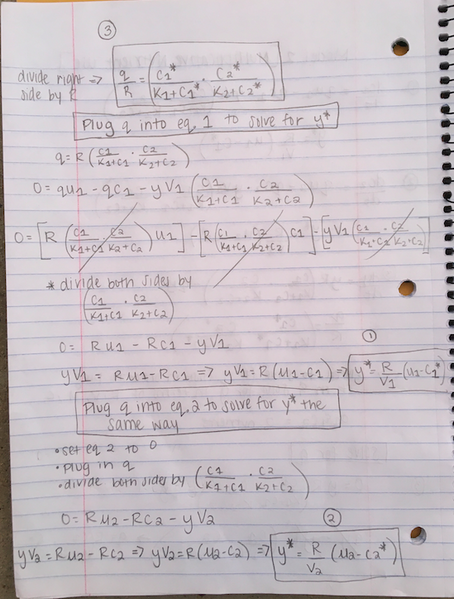 ③
divide right => q/R = (C1*/K1+C1* · C2*/K2+C2*)
side by R
Plug q into eq. 1 to solve for y*
q = R (C1/K1+C1 · C2/K2+C2)
0 = qu1 - qC1 - yV1 (C1/K1+C1 · C2/K2+C2)
0 = [R (C1/K1+C1 · C2/K2+C2) u1] - [R (C1/K1+C1 · C2/K2+C2) C1] - [yV1 (C1/K1+C1 · C2/K2+C2)]
* divide both sides by
(C1/K1+C1 · C2/K2+C2)
0 = Ru1 - RC1 - yV1
①
yV1 = Ru1 - RC1 => yV1 = R(u1-C1) => y* = R/V1 (u1-C1*)
Plug q into eq. 2 to solve for y* the
same way
• set eq 2 to 0
• plug in q
• divide both sides by (C1/K1+C1 · C2/K2+C2)
0 = Ru2 - RC2 - yV2
②
yV2 = Ru2 - RC2 => yV2 = R(u2-C2) => y* = R/V2 (u2-C2*)